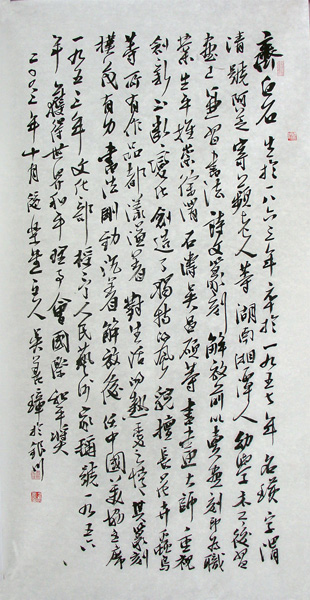 齊白石 生於一八六三年 卒於一九五七年 名璜 字渭
清 號阿芝 寄萍老人等 湖南湘潭人 幼學木工 後習
畫 並習書法 詩文篆刻 解放前以賣畫刻印為職
業 生平推崇徐渭 石濤 吳昌碩等書畫大師 重視
創新 不斷變化 創造了獨特的風貌 擅長花卉蟲鳥
等 所有作品都洋溢著對生活的熱愛之情 其篆刻
樸茂有力 書法剛勁沉著 解放後任中國美協主席
一九五三年文化部授予人民藝術家稱號 一九五六
年獲得世界和平理事會國際和平獎
二〇〇三年十月 主人吳善璋於銀川